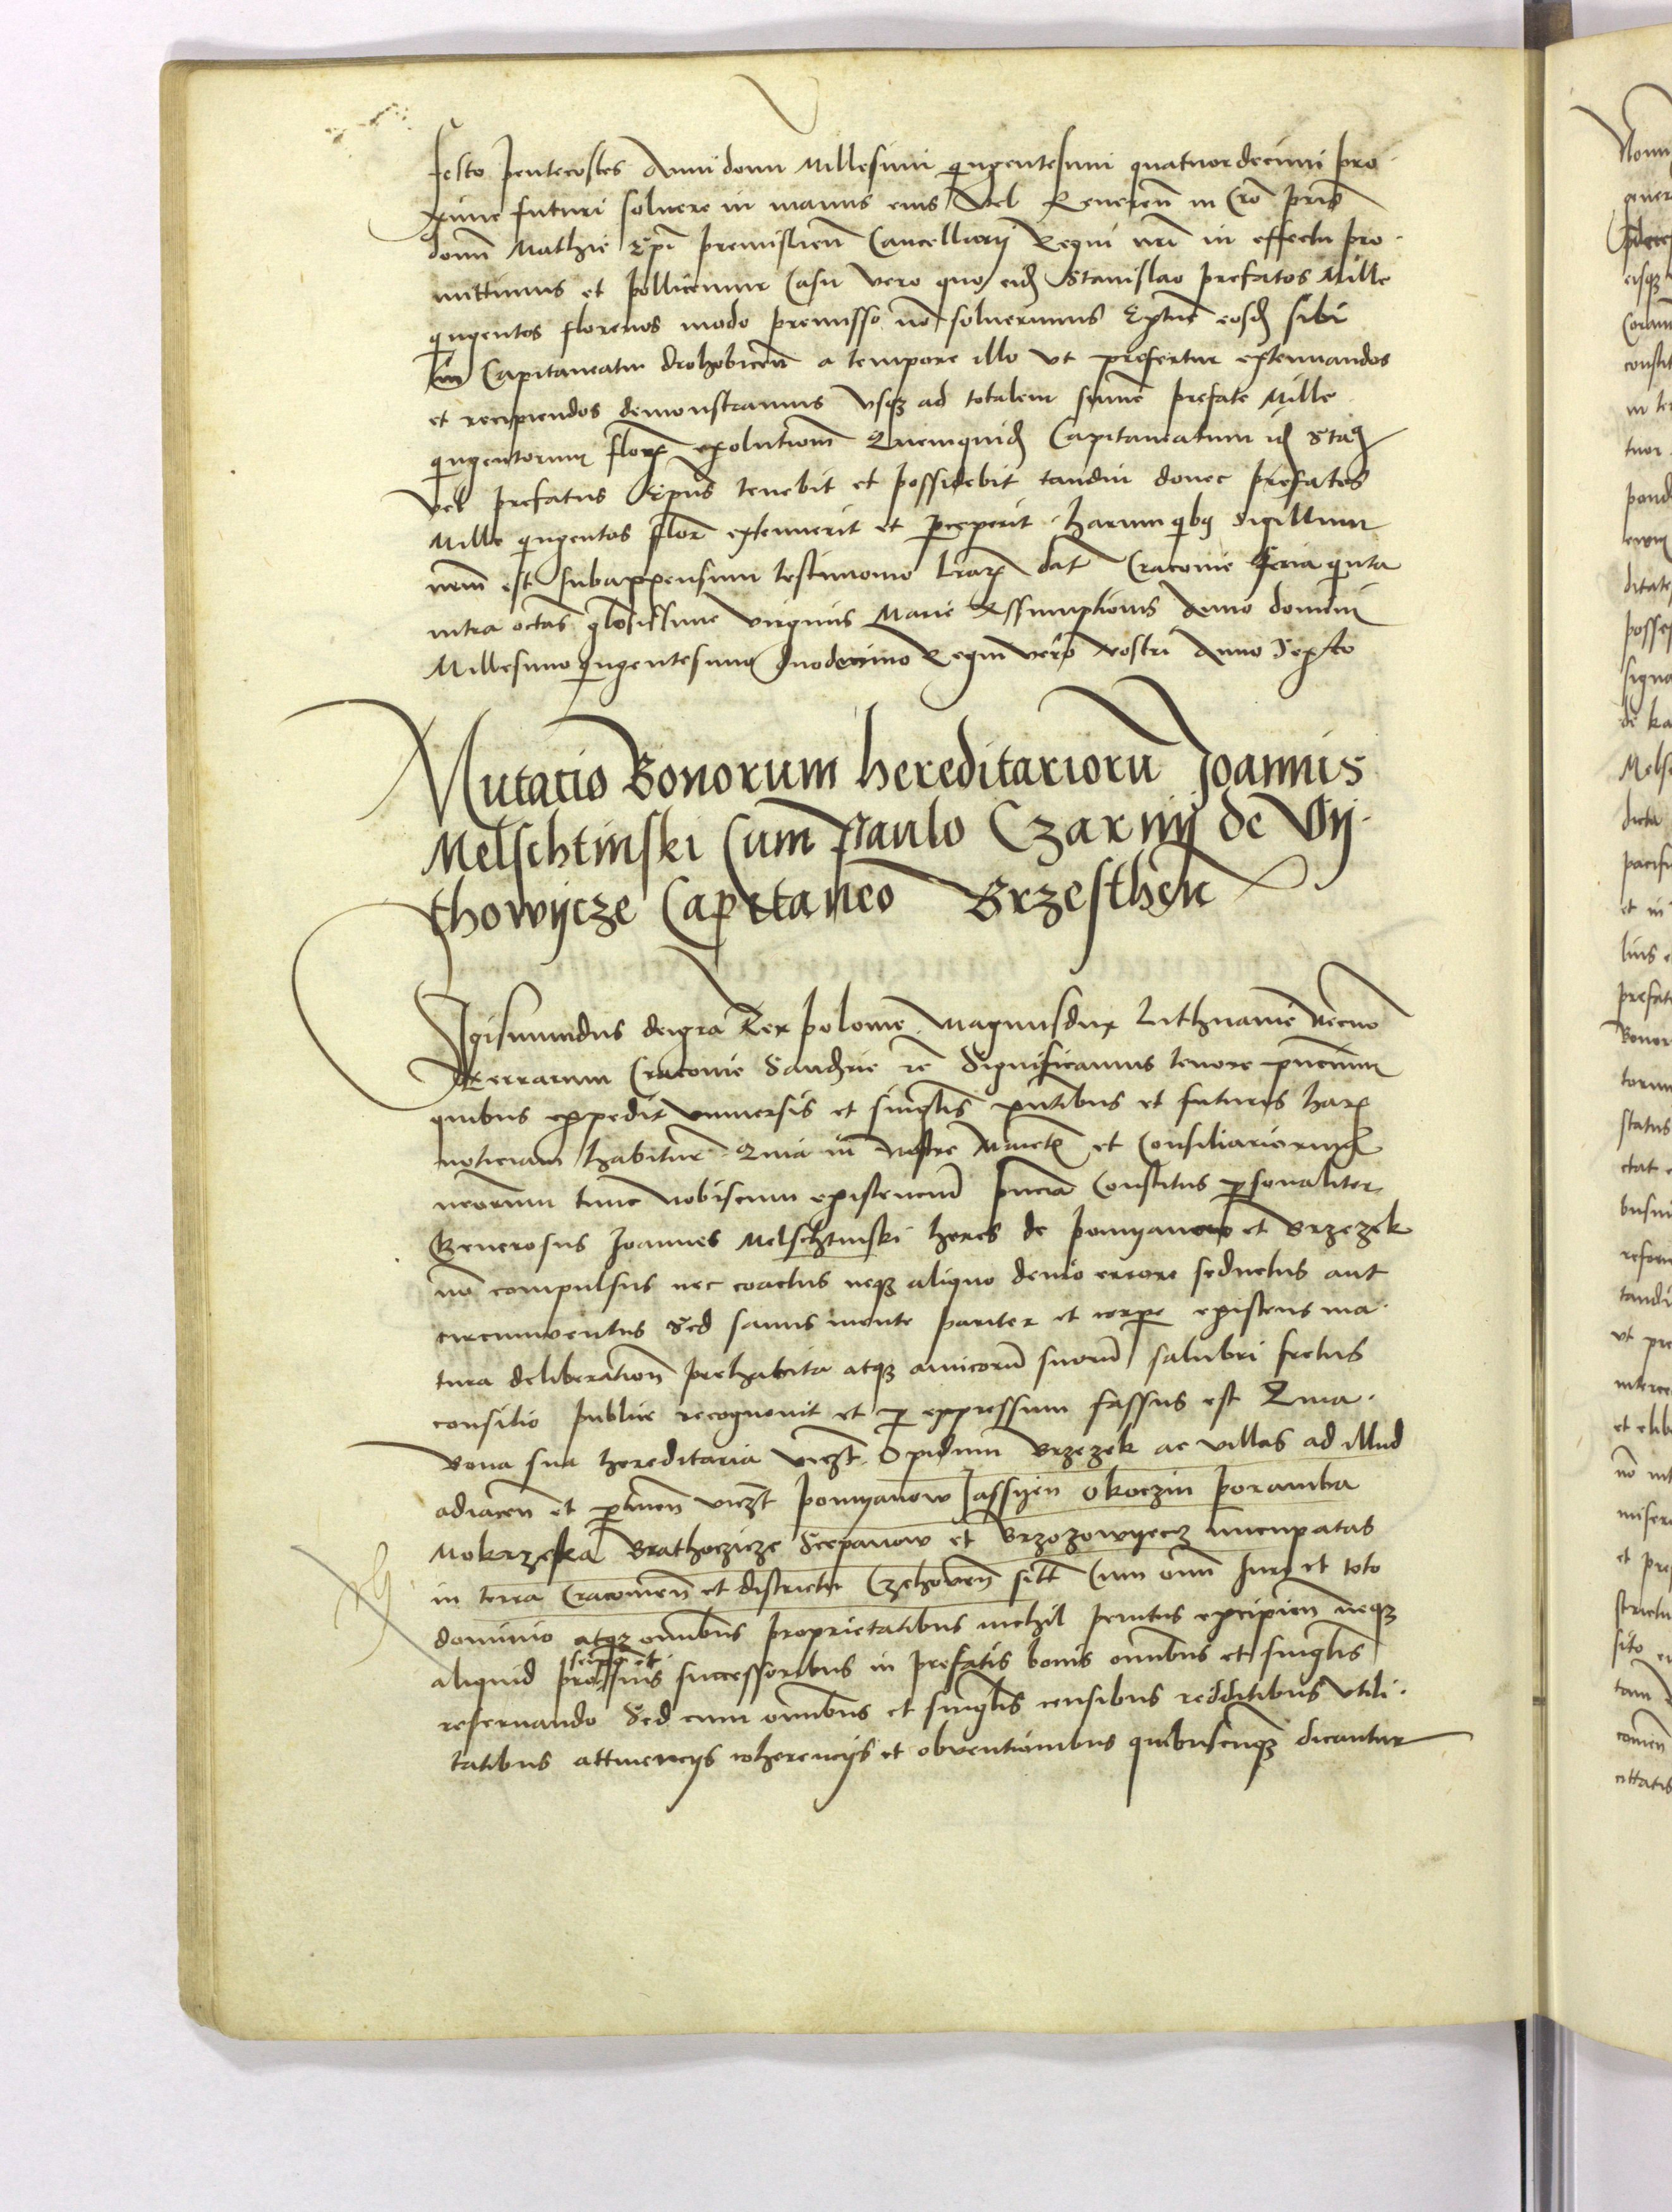 Festo Pentecostes Anni domi Millesimi qingentesimi quatuordecimi pro-
xime futuri soluere in manus eius Vel Reuerend in Cro Pris
domi Mathie Epi Premislien Cancellarij Regni nri in effectu pro-
mittimus et pollicemur Casu vero quo eid Stanislao prefatos Mille
qingentos florenos modo premisso no soluerimus Extunc eosd sibi
in Capitaneatu drohobicen a tempore illo vt prefertur extenuandos
et recipiendos demonstramus vsq ad totalem summe prefate Mille
qingentorum flor exolutiom Quemquid Capitaneatum id Sta
vel prefatus Epus tenebit et possidebit tamdiu donec prefatos
Mille qingentos flor extenuerit et pceperit harum qibus sigillum
nrm est subappensum testimonio lrar dat Cracouie feria qinta
intra octas gloissime virginis Marie Assumptionis Anno domini
Millesimo qingentesimo duodecimo Regni vero nostri Anno Sexto
Mutatio Bonorum hereditarioru Joannis
Melschtinski Cum Paulo Czarnij de Vij-
thowijcze Capitaneo Brzesthen
Sigismundus dei gra Rex polonie Magnusdux Lithuanie Necno
Terrarum Cracouie Sandrie re Significamus tenore pncium
quibus expedit vniuersis et singlis pntibus et futuris har
noticiam habitur Quia in nostre Maiet et Consiliarior
nrorum tunc nobiscum existencium pncia Constitus psonaliter
Generosus Joannes Melschtinski heres de pomyanow et Brzezek
no compulsus nec coactus neq aliquo deuio errore seductus aut
circumuentus Sed sanus mente pariter et corpe existens ma-
tura deliberation prehabita atq amicoru suoru salubri fretus
consilio publice recognouit et p expressum fassus est Quia
bona sua hereditaria viczt Opidum Brzezek ac villas ad illud
adiacen et ptinen viczt pomyanow Jassyen okoczin poramba
Mokrzeska Brathoczicze Scepanow et Brzozowyecz nuncupatas
in terra Cracouien et districtu Czchouen sitt Cum omi Jure et toto
dominio atq omibus proprietatibus nichil penitus excipien neq
aliquid pro se ipso et suis successoribus in prefatis bonis omibus et singlis
reseruando Sed cum omibus et singlis censibus redditibus vtili-
tatibus attinencijs coherencijs et obuentionibus quibuscunq dicantur